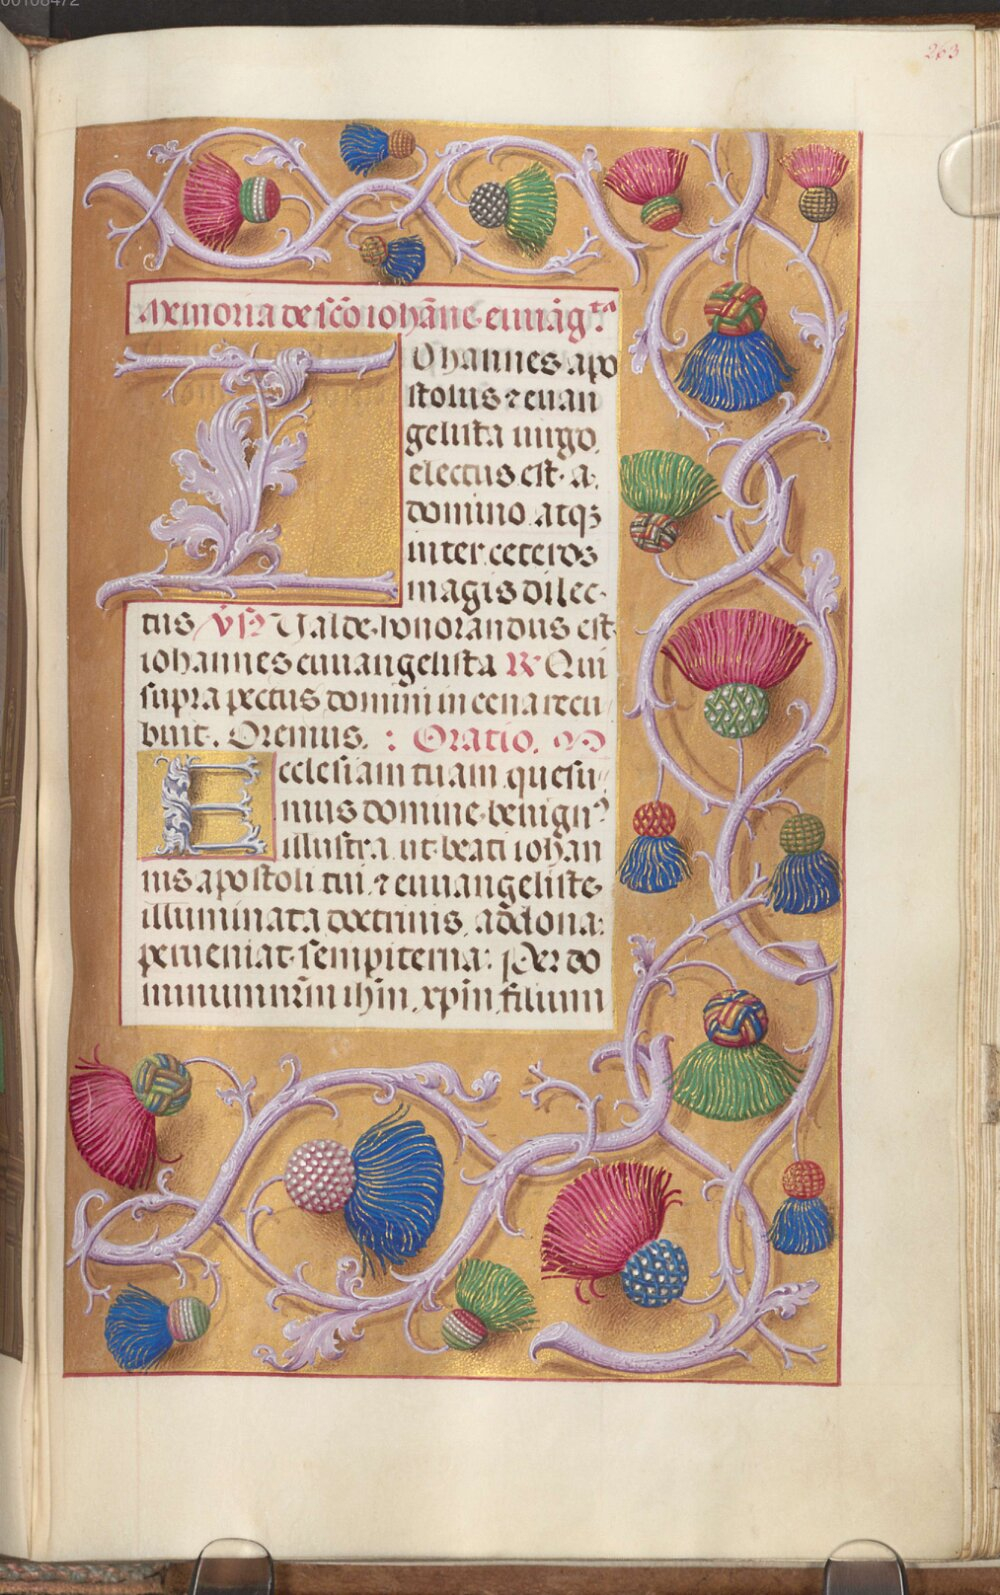 00108472
263
Memoria de scō iohāne euuāg.ta
Iohannes apo
stolus ⁊ euan
gelista uirgo
electus est· a·
domino atqꝫ
inter ceteros
magis dilec·
tus V̇sꝰ Ualde·honorandus est·
iohannes euuangelista R Qui
supra pectus domini in cena recu
buit. Oremus. : Oratio.
Ecclesiam tuam quesu¬
mus domine·benignꝰ
illustra ut·beati iohan
nis apostoli tui ⁊ euuangeliste
illuminata doctrinis, ad dona:
perueniat·sempiterna: Per do
minum nr̄m ihm̄, xp̄m filium